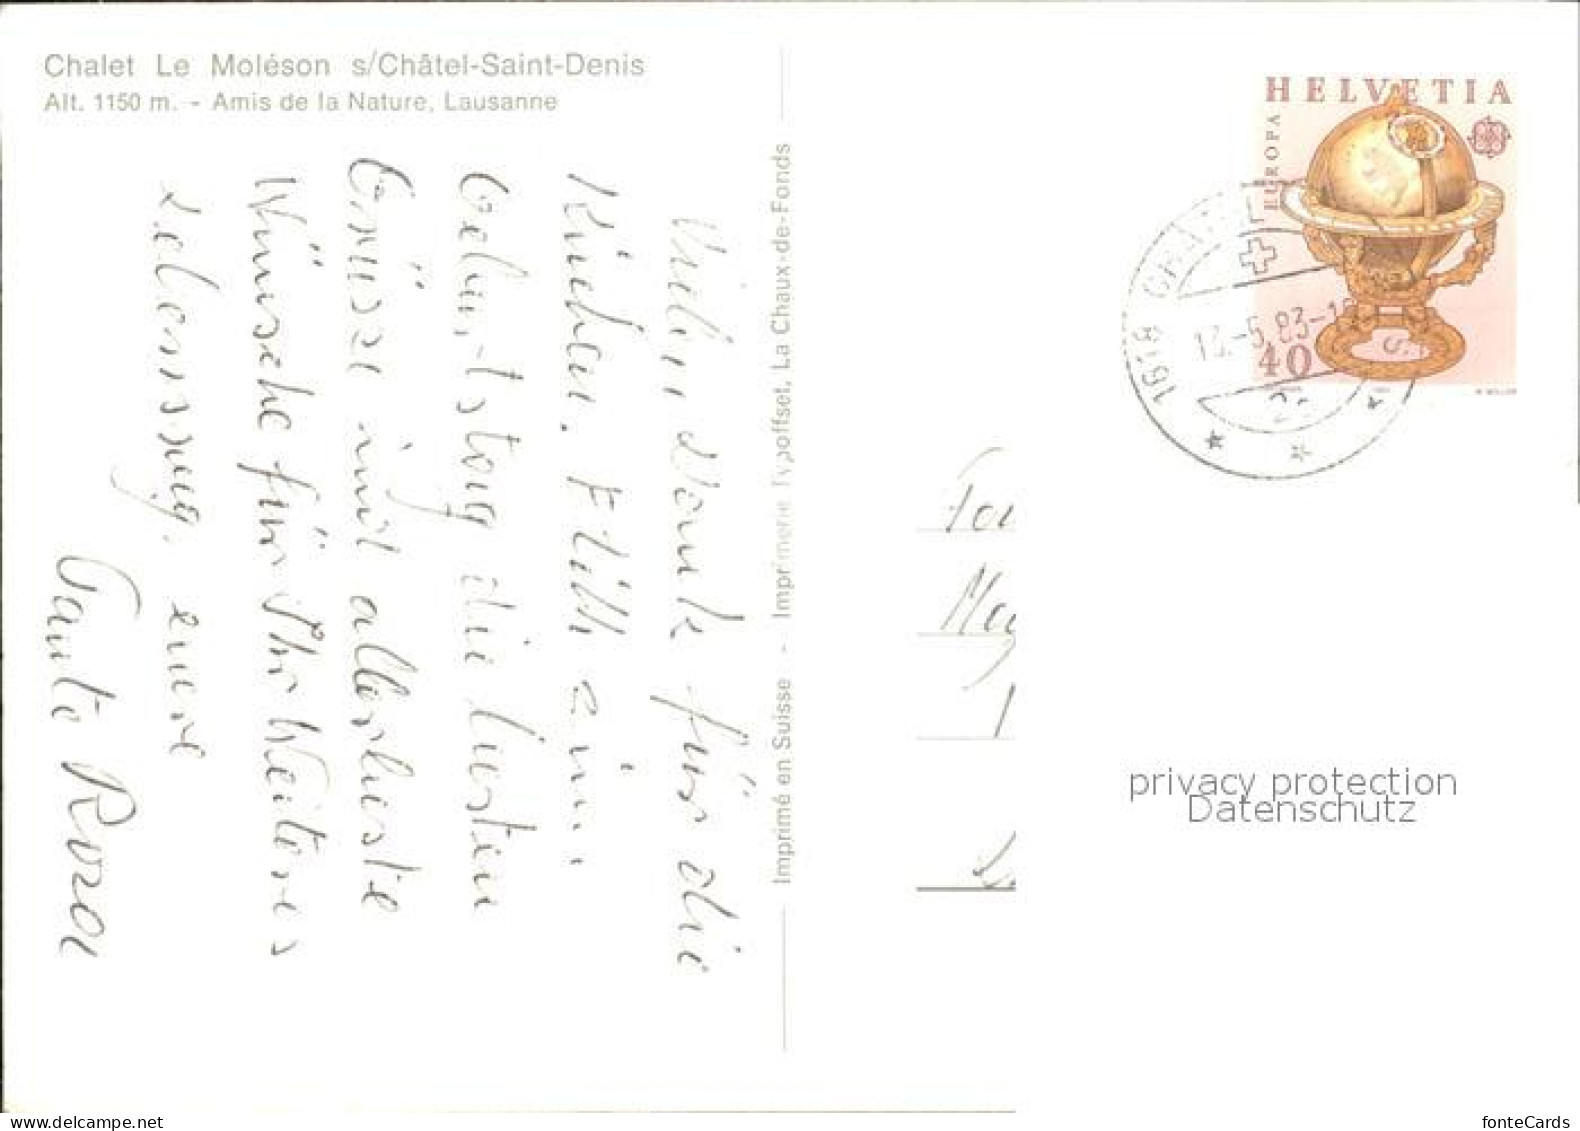 Chalet Le Moléson s/Châtel-Saint-Denis
Alt. 1150 m. - Amis de la Nature, Lausanne
Vielen Dank für die
Kirchen.
Geburtstag die liebsten
Grüsse und allerbeste
Wünsche für Ihr Weiteres
eure
Tante Rosa
Imprimé en Suisse - Imprimerie Typoffset, La Chaux-de-Fonds
HELVETIA
EUROPA
40
1618
-5.83-1
privacy protection
Datenschutz
www.delcampe.net
fonteCards